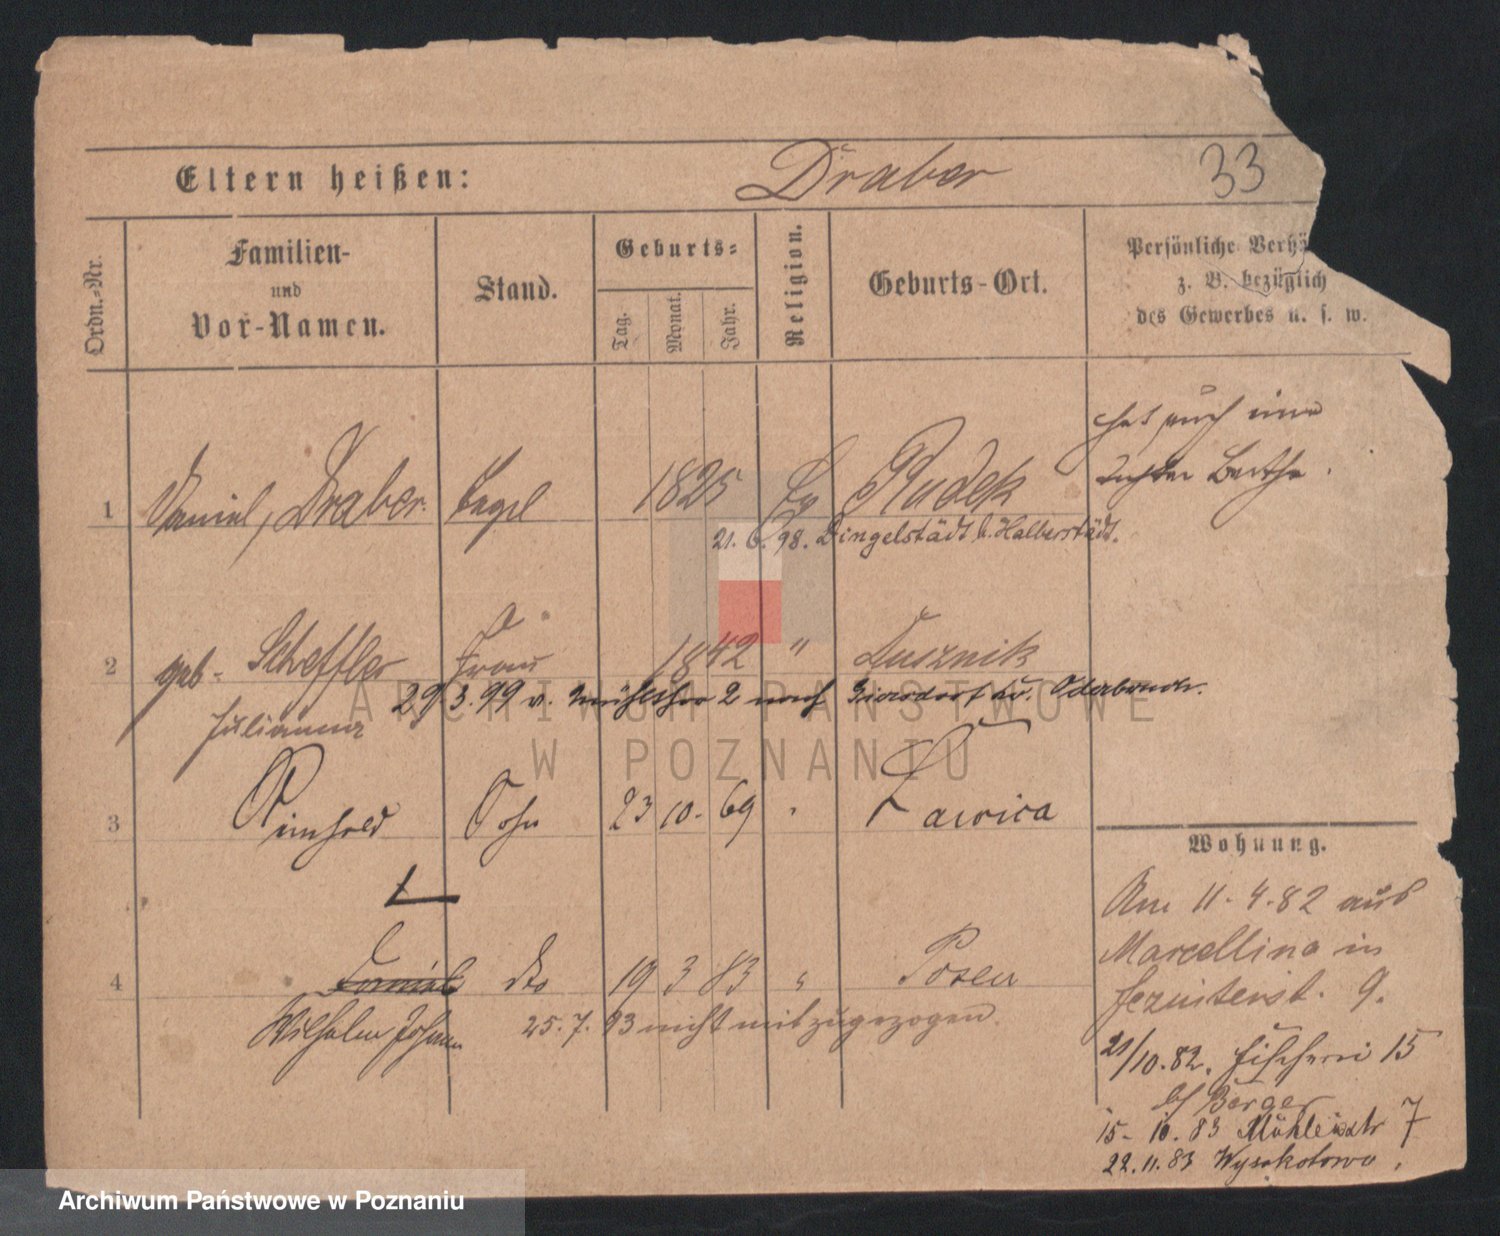 Eltern heißen: Draber 33
Ordn.-Nr.
Familien-
und
Vor-Namen.
Stand.
Geburts-
Tag. Monat. Jahr.
Religion.
Geburts-Ort.
Persönliche Verhä
z. B. bezüglich
des Gewerbes u. s. w.
hat auch eine
Tochter Bertha.
1 Daniel, Draber. 1825 Ev Rudek
21. 6. 98. Dingelstädt b. Halberstädt.
2 geb. Scheffler Frau 1842 " Lusznik
Julianna
29.3.99 v. Mühlthor 2 nach Oderbruch.
3 Reinhold Sohn 23 10. 69 " Lawica
4 Daniel dto 19 3 83 " Posen
Wilhelm Johann 25. 7. 93 nicht mitzugezogen.
Wohnung.
Am 11. 4. 82 aus
Marcellino in
Jezuitenst. 9.
21/10.82. Fischerei 15
b/ Berger
15. 10. 83 Mühlenstr 7
22. 11. 83 Wysokotowo.
ARCHIWUM PAŃSTWOWE
W POZNANIU
Archiwum Państwowe w Poznaniu